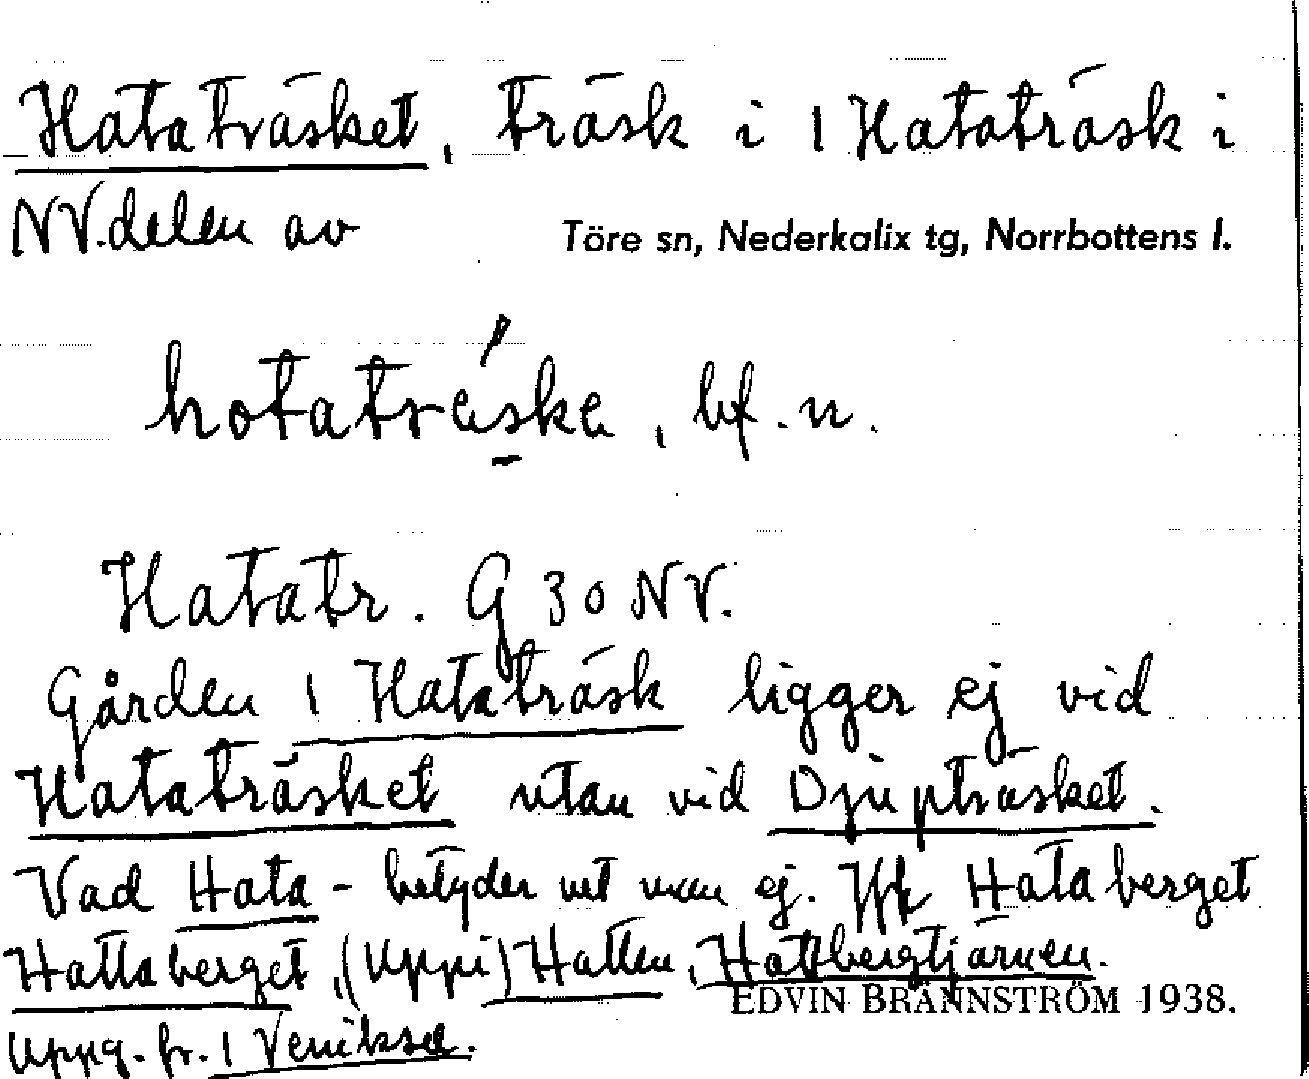 Hataträsket, träsk i 1 Hataträsk i
NV.delen av Töre sn, Nederkalix tg, Norrbottens l.
hotaträska, bf. n.
Hatatr. G 30 NV.
Gården 1 Hataträsk ligger ej vid
Hataträsket utan vid Djupträsket.
Vad Hata- betyder vet man ej. Jfr Hataberget
Hattaberget, (Uppi) Hatten, Hattbergtjärnen.
EDVIN BRÄNNSTRÖM 1938.
Uppg. fr. 1